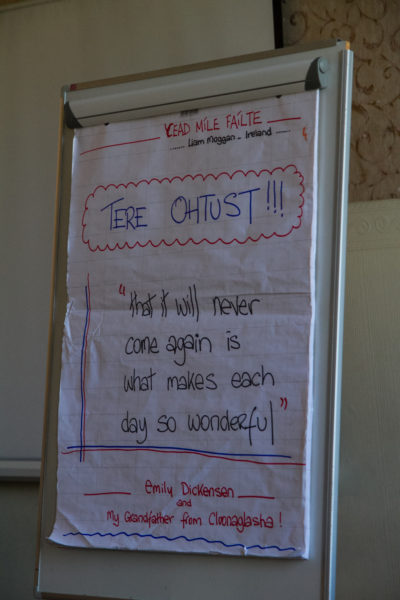 CEAD MÍLE FÁILTE
...... Liam Moggan .. Ireland ......
TERE OHTUST!!!
"that it will never
come again is
what makes each
day so wonderful"
Emily Dickensen
and
My Grandfather from Cloonaglasha!